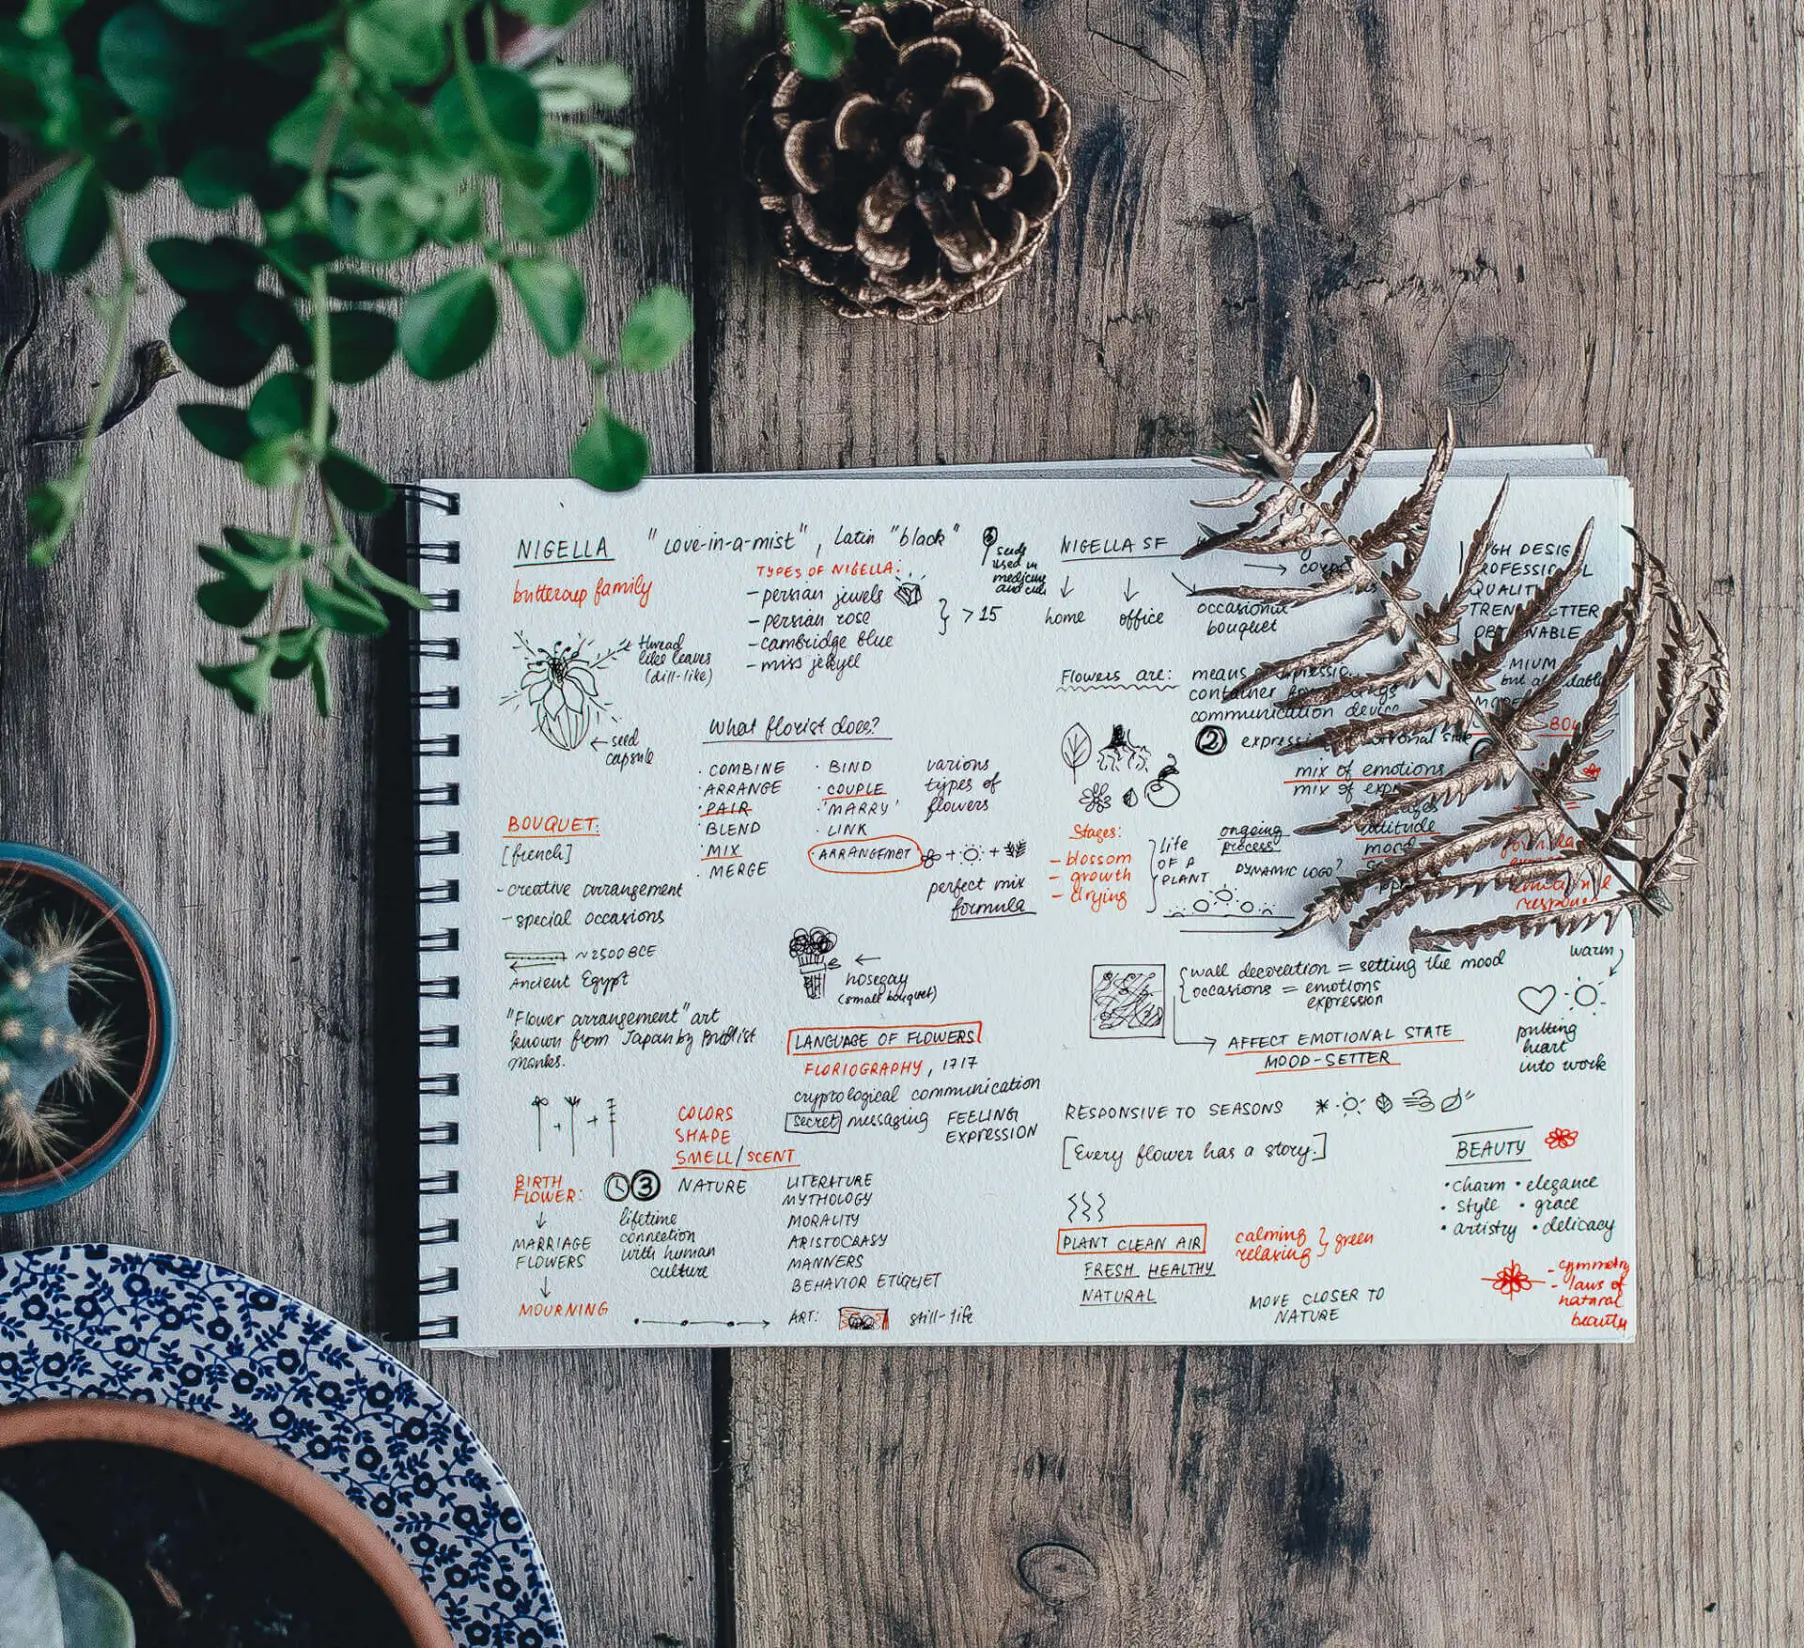 NIGELLA "Love-in-a-mist", Latin "black"
buttercup family
thread
like leaves
(dill-like)
seed
capsule
TYPES OF NIGELLA:
- persian jewels
- persian rose
- cambridge blue
- miss jekyll
> 15
seeds
used in
medicine
What florist does?
· COMBINE
· ARRANGE
· PAIR
· BLEND
· MIX
· MERGE
· BIND
· COUPLE
· 'MARRY'
· LINK
· ARRANGEMET
various
types of
flowers
+ +
perfect mix
formula
BOUQUET:
[french]
- creative arrangement
- special occasions
~2500 BCE
Ancient Egypt
"Flower arrangement" art
known from Japan by Budhist
monks.
nosegay
(small bouquet)
LANGUAGE OF FLOWERS
FLORIOGRAPHY, 1717
cryptological communication
secret messaging
FEELING
EXPRESSION
+ +
COLORS
SHAPE
SMELL/SCENT
BIRTH
FLOWER:
MARRIAGE
FLOWERS
MOURNING
3
lifetime
connection
with human
culture
NATURE
LITERATURE
MYTHOLOGY
MORALITY
ARISTOCRASY
MANNERS
BEHAVIOR ETIQUET
ART:
still-life
NIGELLA SF
home
office
occasional
bouquet
HIGH DESIGN
PROFESSIONAL
QUALITY
TRENDSETTER
OBTAINABLE
but affordable
Flowers are:
means
container
communication device
2
mix of emotions
mix of
attitude
mood
Stages:
- blossom
- growth
- drying
life
OF A
PLANT
ongoing
process
DYNAMIC LOGO?
emotional
response
wall decoration = setting the mood
occasions = emotions
expression
AFFECT EMOTIONAL STATE
MOOD-SETTER
warm
putting
heart
into work
RESPONSIVE TO SEASONS
[Every flower has a story.]
PLANT CLEAN AIR
FRESH HEALTHY
NATURAL
calming
relaxing
green
MOVE CLOSER TO
NATURE
BEAUTY
· charm · elegance
· style · grace
· artistry · delicacy
- symmetry
- laws of
natural
beauty